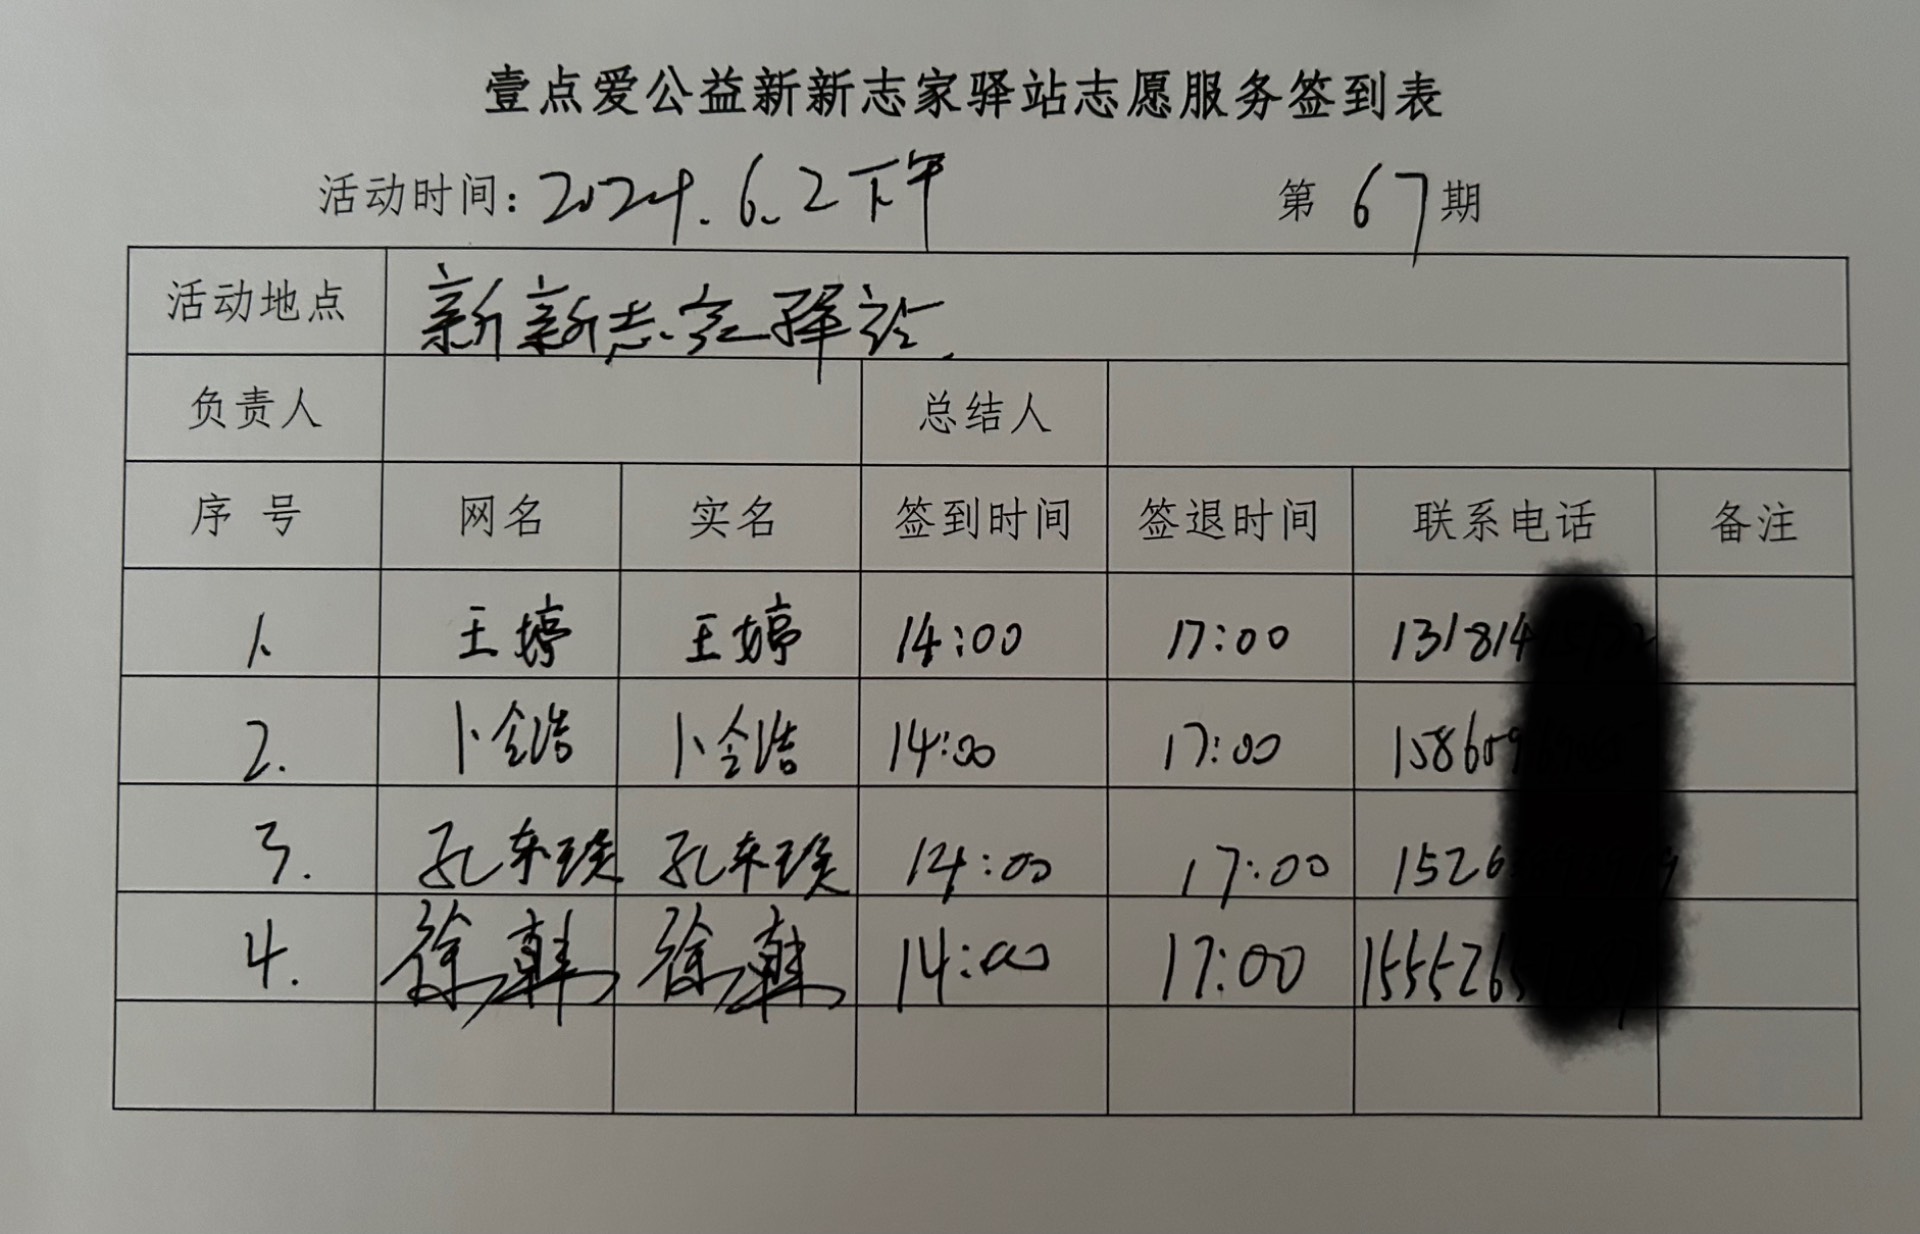 壹点爱公益新新志家驿站志愿服务签到表
活动时间: 2024.6.2下午 第 67 期
活动地点 新新志家驿站.
负责人 总结人
序 号 网名 实名 签到时间 签退时间 联系电话 备注
1. 王婷 王婷 14:00 17:00 131814
2. 卜令浩 卜令浩 14:00 17:00 158659
3. 孔东 孔东 14:00 17:00 1526
4. 徐 徐 14:00 17:00 1555265